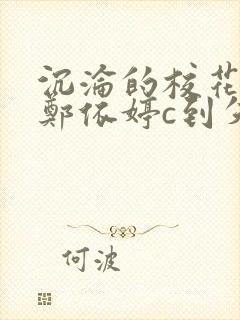 沉沦的校花
郑依婷c到失
何波